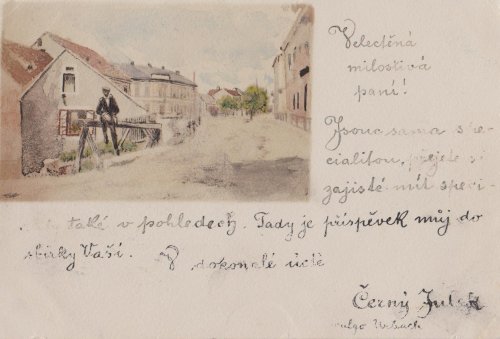 Velectěná
milostivá
paní!
Jsouc sama spe-
cialitou, přejete si
zajisté mít speci-
také v pohledech. Tady je příspěvek můj do
sbírky Vaší.
V dokonalé úctě
Černý Julek
vulgo